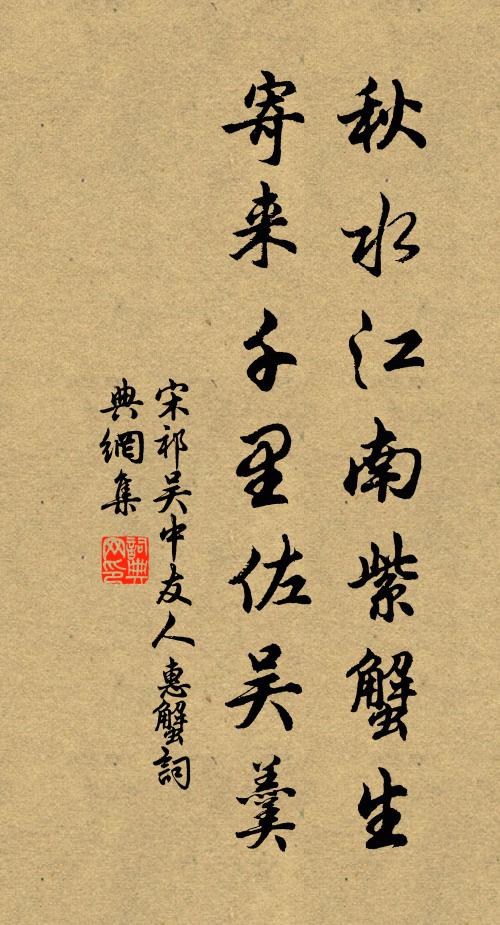 秋水江南紫蟹生
寄来千里佐吴羹
宋祁吴中友人惠蟹詞
典網集
詞典
网印